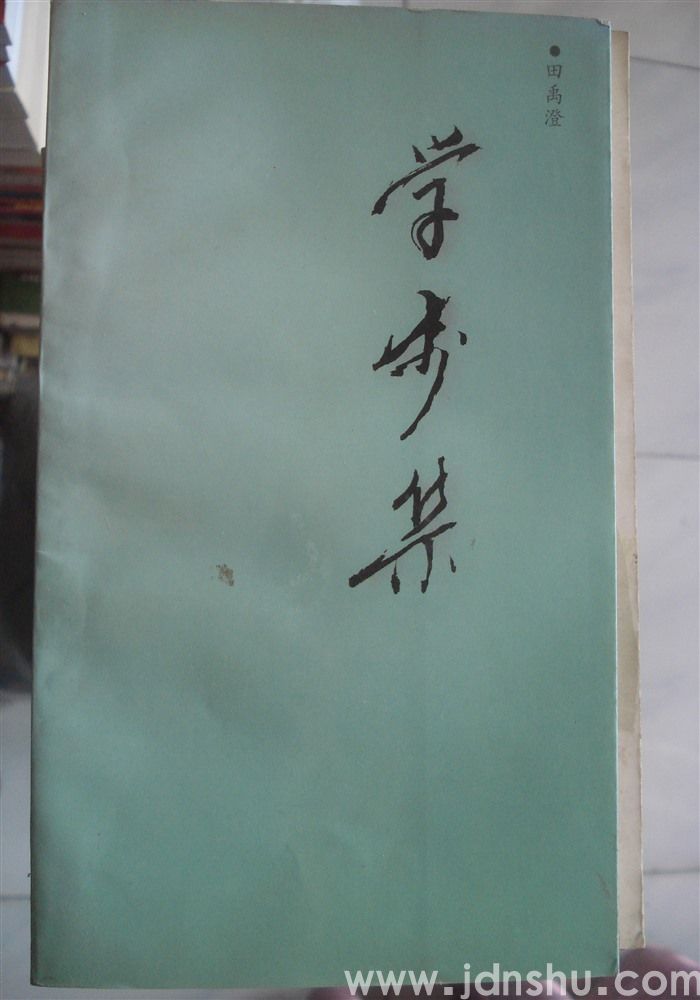 ●田禹澄
学步集
www.jdnshu.com